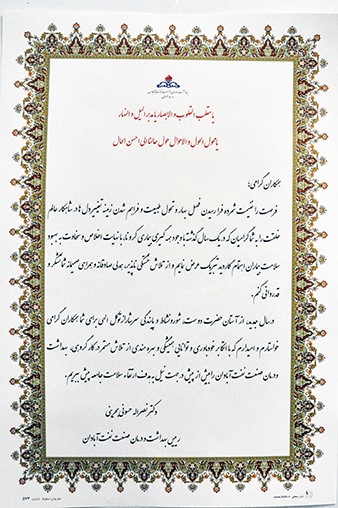 یا مقلب القلوب و الابصار یا مدبر اللیل و النهار
یا محول الحول و الاحوال حول حالنا الی احسن الحال
همکاران گرامی؛
فرصت را غنیت شمرده فرا رسیدن فصل بهار و تحول طبیعت و فراهم شدن زمینه تغییر دل ها در شاهکار عالم
خلقت را به شما گرامیان که در یک سال گذشته با وجود همه گیری بیماری کرونا، با نهایت اخلاص و سخاوت به بهبود
سلامت بیماران اهتمام کاردید تبریک عرض نمایم و از تلاش خستگی ناپذیر، همدلی صادقانه و همراهی صمیمانه شما تشکر و
قدردانی کنم.
در سال جدید، از آستان حضرت دوست، شور و نشاط و بالندگی سرشار از توکل الهی برای شما همکاران گرامی
خواستارم و امیدوارم که با اتکا بر خودباوری و توانایی همیشگی و بهره مندی از تلاش مستمر در کار گروهی، بهداشت
و درمان صنعت نفت آبادان را بیش از پیش در جهت نیل به هدف ارتقاء سلامت جامعه پیش ببریم.
دکتر نصراله حسونی بحرینی
رییس بهداشت و درمان صنعت نفت آبادان